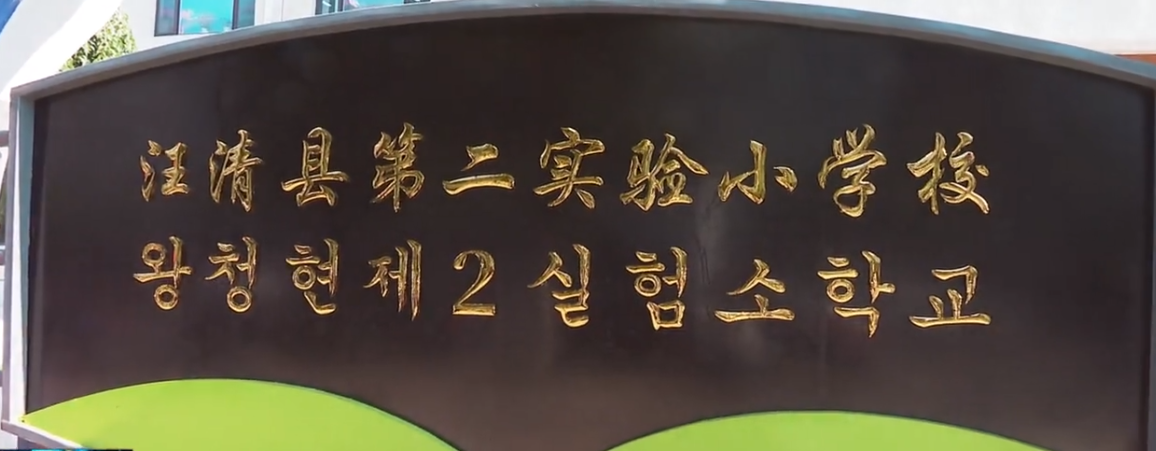 汪清县第二实验小学校
왕청현제2실험소학교